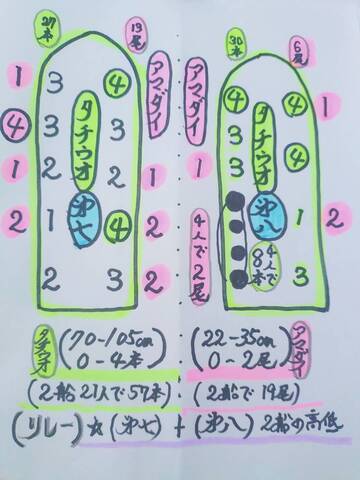 27本 13尾
アマダイ
タチウオ
第七
1 3 ④
④ 3 3
1 2 2 1
2 1 ④ 2
2 3 2
30本 6尾
アマダイ
タチウオ
第八
④ 1
3 ④
1 3 ④
1 2
3
4人で2尾
4人で8本
タチウオ (70-105cm 0-4本)
(22-35cm 0-2尾) アマダイ
(2船21人で57本)・(2船で19尾)
(リレー)☆(第七)+(第八) 2船の高低